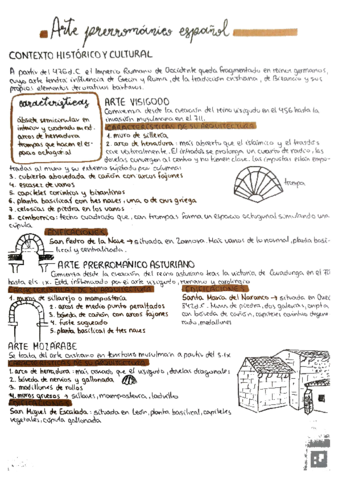 Arte prerrománico español
CONTEXTO HISTÓRICO Y CULTURAL
A partir del 476 d.C. el Imperio Romano de Occidente queda fragmentado en reinos germanos,
cuyo arte tendrá influencia de Grecia y Roma, de la tradición cristiana, de Bizancio y sus
propios elementos decorativos bárbaros.
Características
ábside semicircular en
interior y cuadrado en ext.
arcos de herradura
trompas que hacen el es-
pacio octogonal
ARTE VISIGODO
Comienza desde la creación del reino visigodo en el 456 hasta la
invasión musulmana en el 711.
CARACTERÍSTICAS DE SU ARQUITECTURA
1. muro de sillería
2. arco de herradura: más abierto que el islámico y el trasdós
cae verticalmente. El intradós se prolonga un cuarto de radio, las
dovelas convergen al centro y no tienen clave. Las impostas
al muro y va extremo sujetado por columnas
3. cubierta abovedada de cañón con arcos fajones
4. escasez de vanos
5. capiteles corintios y bizantinos
6. planta basilical con tres naves, una, o de cruz griega
7. celosías de piedra en los vanos
8. cimborrio: techo cuadrado que, con trompas forma un espacio octogonal simulando una
cúpula
trompa
San Pedro de la Nave → situada en Zamora. Más vanos de lo normal, planta basi-
lical y centralizada.
ARTE PRERROMÁNICO ASTURIANO
Comienza desde la creación del reino asturiano tras la victoria de Covadonga en el
hasta el s. IX. Está influenciado por el arte visigodo, romano y carolingio
1. muros de sillarejo o mampostería
2. arcos de medio punto peraltados
3. bóveda de cañón con arcos fajones
4. fuste sogueado
5. planta basilical de tres naves
Santa María del Naranco → situada en Oviedo
842 d.C. Muros de piedra, dos galerías, amplia
con bóveda de cañón, capiteles corintios
medallones
ARTE MOZÁRABE
Se trata del arte cristiano en territorio musulmán a partir del s. IX
1. arco de herradura: más cerrado que el visigodo, dovelas diagonales
2. bóveda de nervios y gallonada
3. modillones de rollos
4. muros gruesos → sillares, mampostería, ladrillo
San Miguel de Escalada: situada en León, planta basilical, capiteles
vegetales, cúpula gallonada